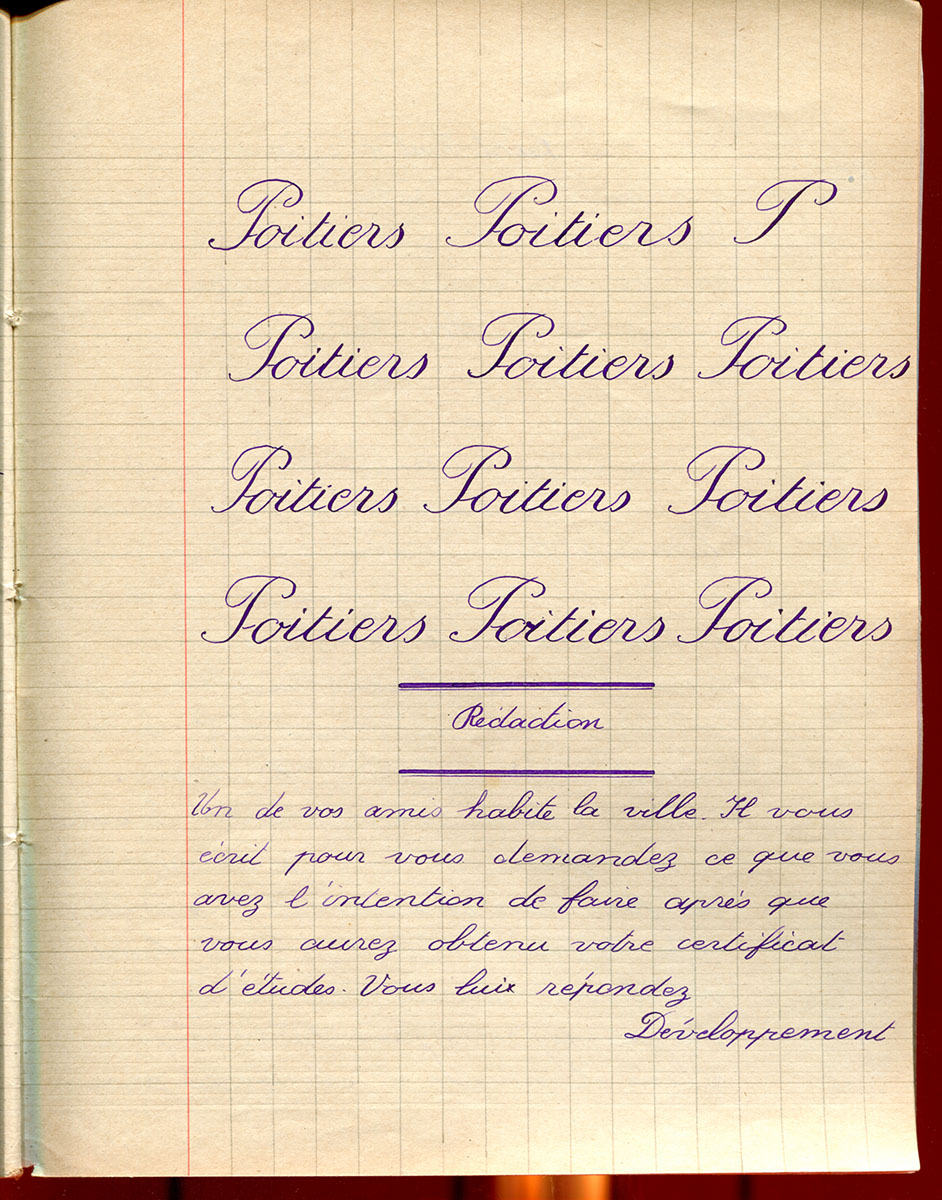 Poitiers Poitiers P
Poitiers Poitiers Poitiers
Poitiers Poitiers Poitiers
Poitiers Poitiers Poitiers
Rédaction
Un de vos amis habite la ville. Il vous
écrit pour vous demandez ce que vous
avez l'intention de faire après que
vous aurez obtenu votre certificat
d'études. Vous luix répondez
Développement